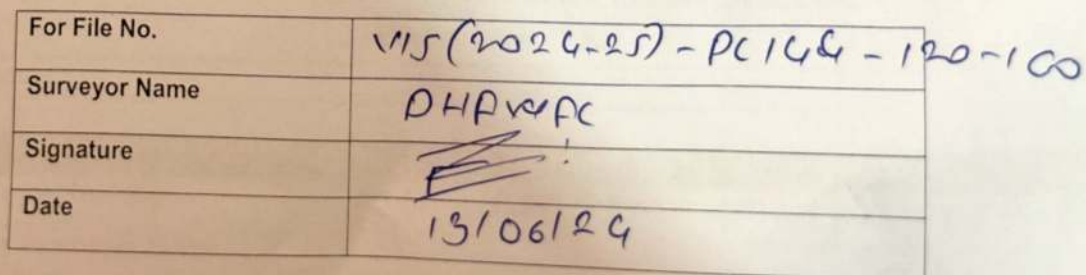 For File No. VIS(2024-25)-PC144-120-160
Surveyor Name DHAVAL
Signature
Date 13/06/24